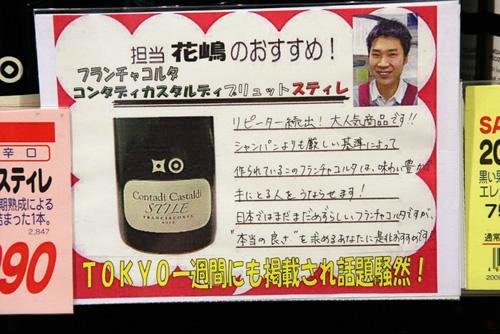 担当 花嶋のおすすめ!
フランチャコルタ
コンタディカスタルディブリュットスティレ
リピーター続出!大人気商品です!!
シャンパンよりも厳しい基準によって
作られているこのフランチャコルタは、味わい豊かで
手にとる人をうならせます!
日本ではまだまだめずらしいフランチャコルタですが、
"本当の良さ"を求めるあなたに是非おすすめです
Contadi Castaldi
STYLE
FRANCIACORTA
TOKYO一週間にも掲載され話題騒然!
辛口
スティレ
期熟成による
詰まった1本。
2,847
90
SA
20
黒い男
エレ
75
通常